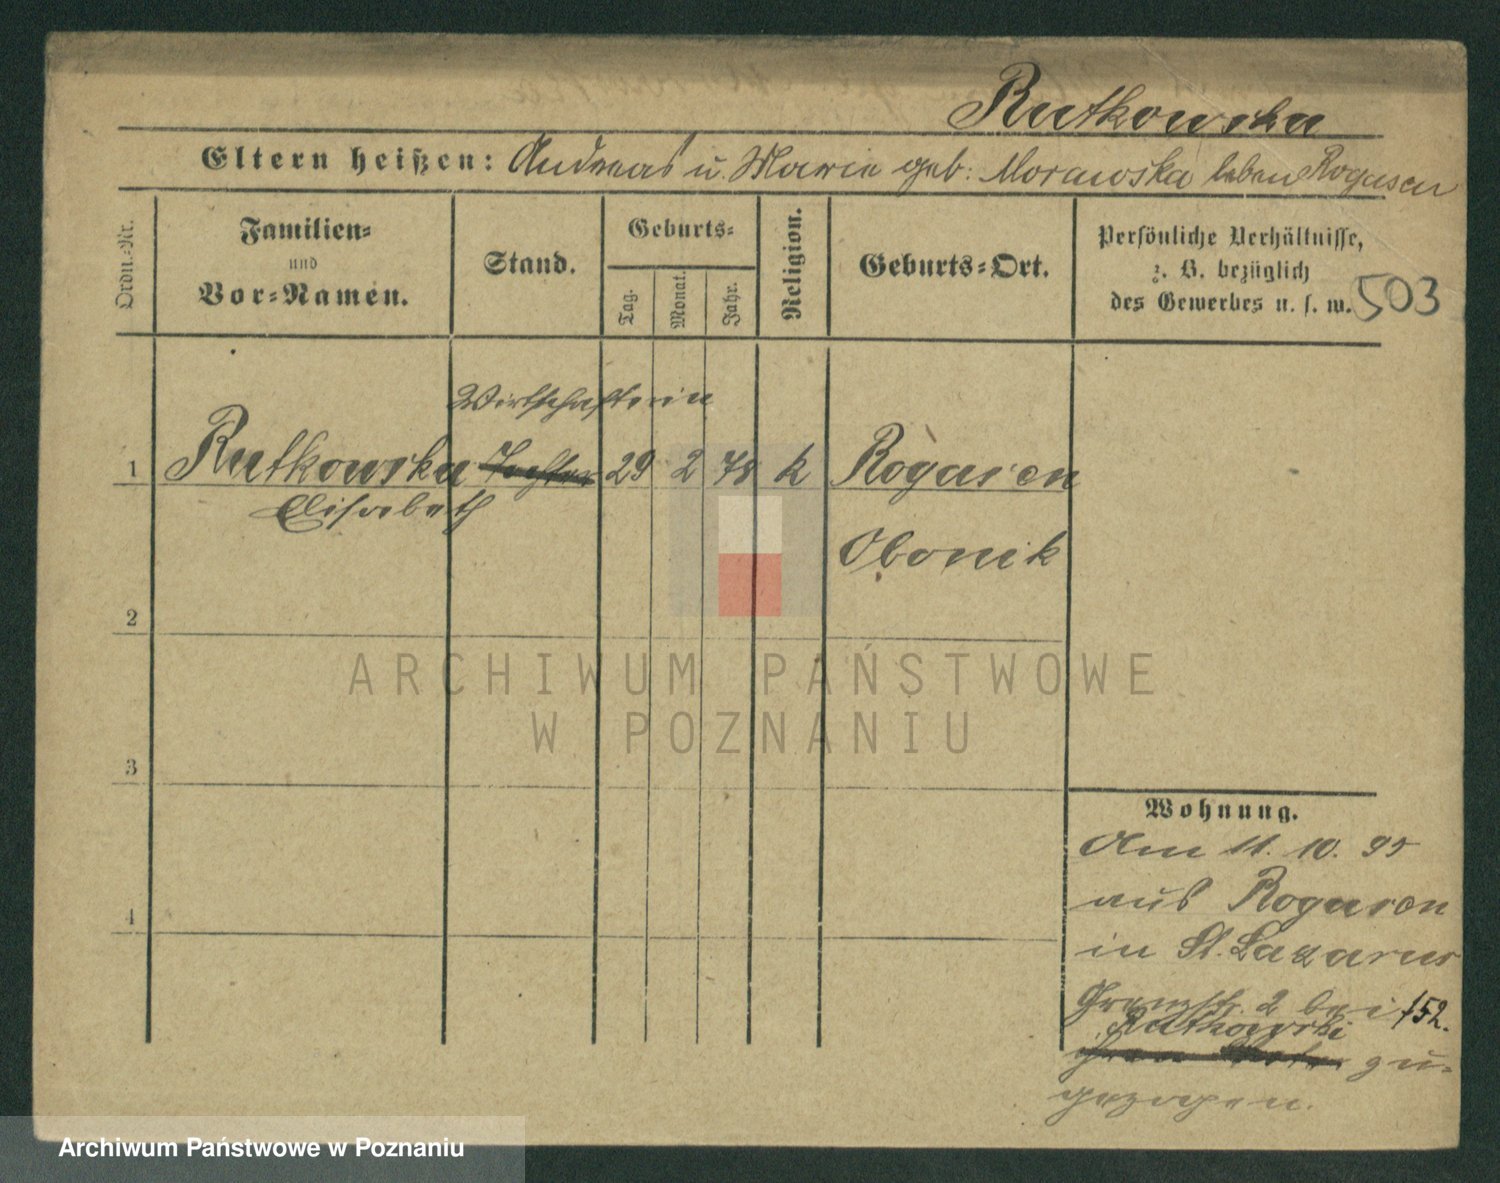 Rutkowska
Eltern heißen: Andreas u. Marie geb: Morawska leben Rogasen
Ordn.-Nr.
Familien-
und
Vor-Namen.
Stand.
Geburts-
Tag.
Monat.
Jahr.
Religion.
Geburts-Ort.
Persönliche Verhältnisse,
z. B. bezüglich
des Gewerbes u. s. w.
503
Wirtschafterin
1 Rutkowska Tochter 29 2 78 k Rogasen
Elisabeth
Obonik
2
3
4
ARCHIWUM PAŃSTWOWE
W POZNANIU
Wohnung.
Am 11. 10. 95
aus Rogasen
in St. Lazarus
Grenzstr. 2 bei 152.
Rutkowski
zu-
gezogen.
Archiwum Państwowe w Poznaniu